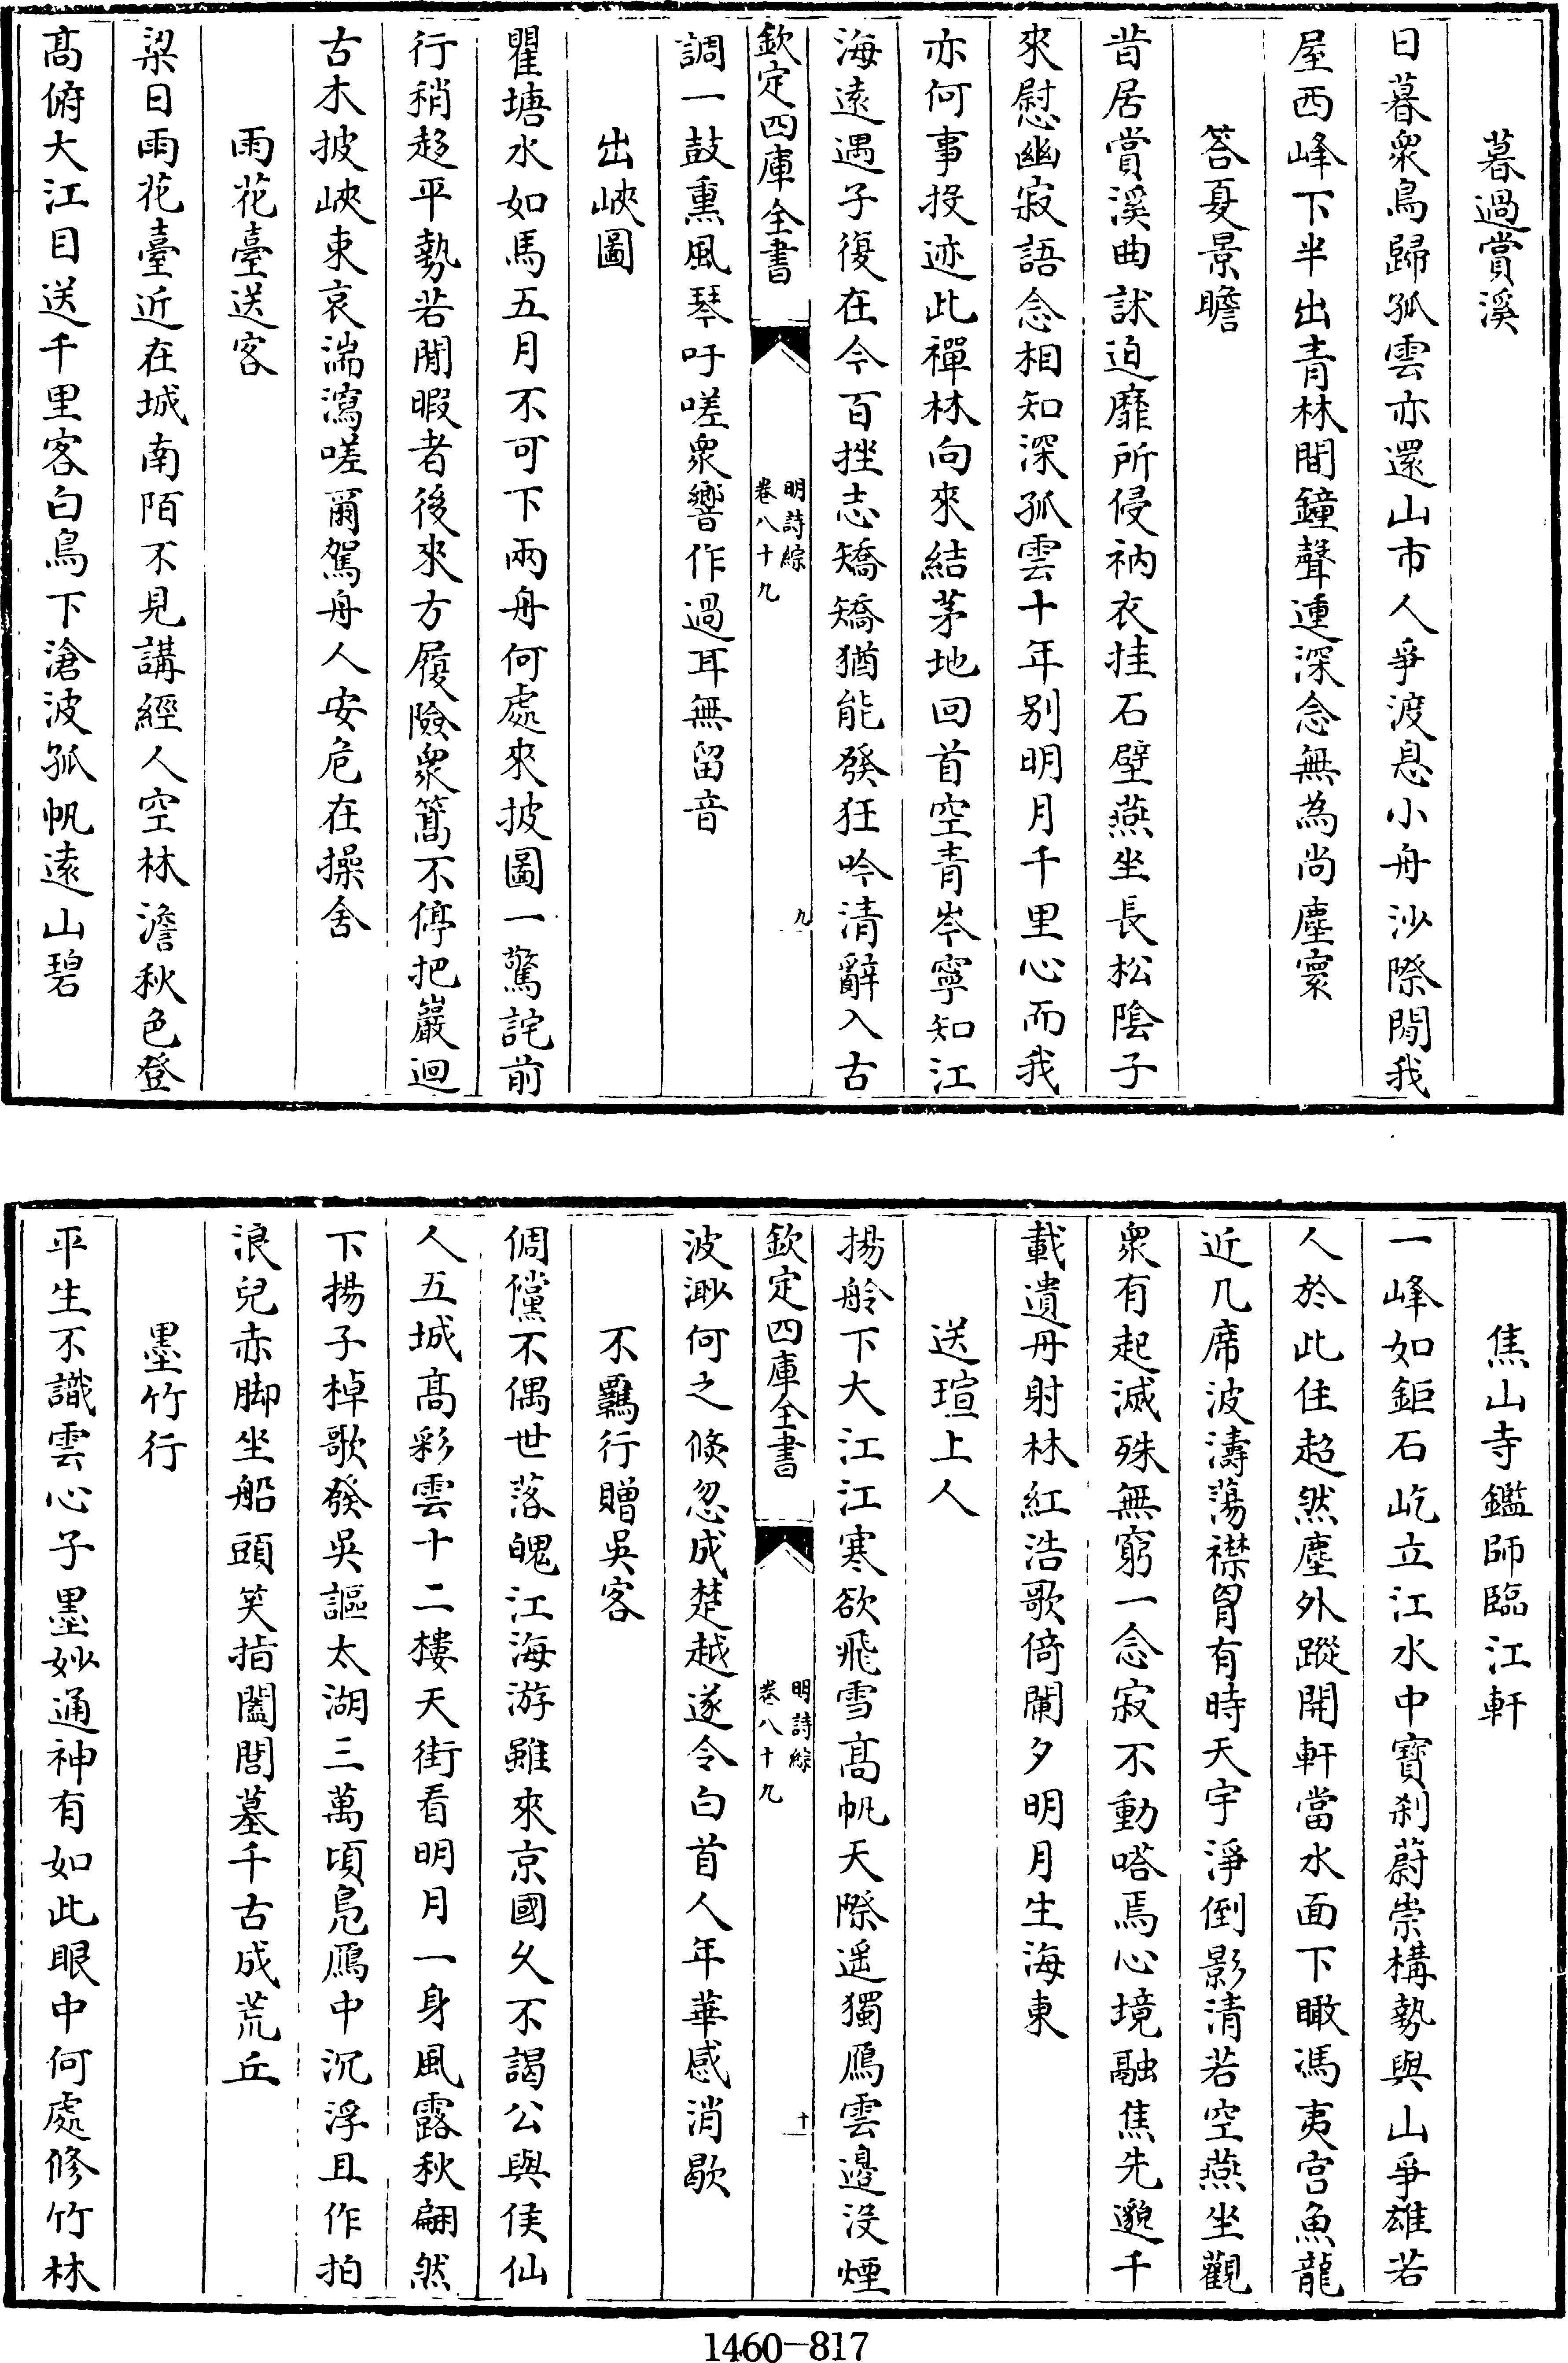 暮過賞溪
日暮衆鳥歸孤雲亦還山市人爭渡息小舟沙際閒我
屋西峰下半出青林間鐘聲連深念無為尚塵寰
答夏景瞻
昔居賞溪曲訹迫靡所侵衲衣挂石壁燕坐長松陰子
來慰幽寂語念相知深孤雲十年别明月千里心而我
亦何事投迹此禪林向來結茅地回首空青岑寧知江
海遠遇子復在今百挫志矯矯猶能發狂吟清辭入古
欽定四庫全書
明詩綜
卷八十九
九
調一鼓熏風琴吁嗟衆響作過耳無留音
出峽圖
瞿塘水如馬五月不可下兩舟何處來披圖一驚詫前
行稍趁平勢若閒暇者後來方履險衆篙不停把巖迴
古木披峽東哀湍瀉嗟爾駕舟人安危在操舍
雨花臺送客
梁日雨花臺近在城南陌不見講經人空林澹秋色登
高俯大江目送千里客白鳥下滄波孤帆遠山碧
焦山寺鑑師臨江軒
一峰如鉅石屹立江水中寶刹蔚崇構勢與山爭雄若
人於此住超然塵外蹤開軒當水面下瞰馮夷宫魚龍
近几席波濤蕩襟胷有時天宇淨倒影清若空燕坐觀
衆有起滅殊無窮一念寂不動嗒焉心境融焦先邈千
載遺丹射林紅浩歌倚闌夕明月生海東
送瑄上人
揚舲下大江江寒欲飛雪高帆天際遥獨鴈雲邊没煙
欽定四庫全書
明詩綜
卷八十九
十
波渺何之倐忽成楚越遂令白首人年華感消歇
不羈行贈吳客
倜儻不偶世落魄江海游雖來京國久不謁公與侯仙
人五城高彩雲十二樓天街看明月一身風露秋翩然
下揚子棹歌發吳謳太湖三萬頃鳬鴈中沉浮且作拍
浪兒赤脚坐船頭笑指闔閭墓千古成荒丘
墨竹行
平生不識雲心子墨妙通神有如此眼中何處修竹林
1460-817